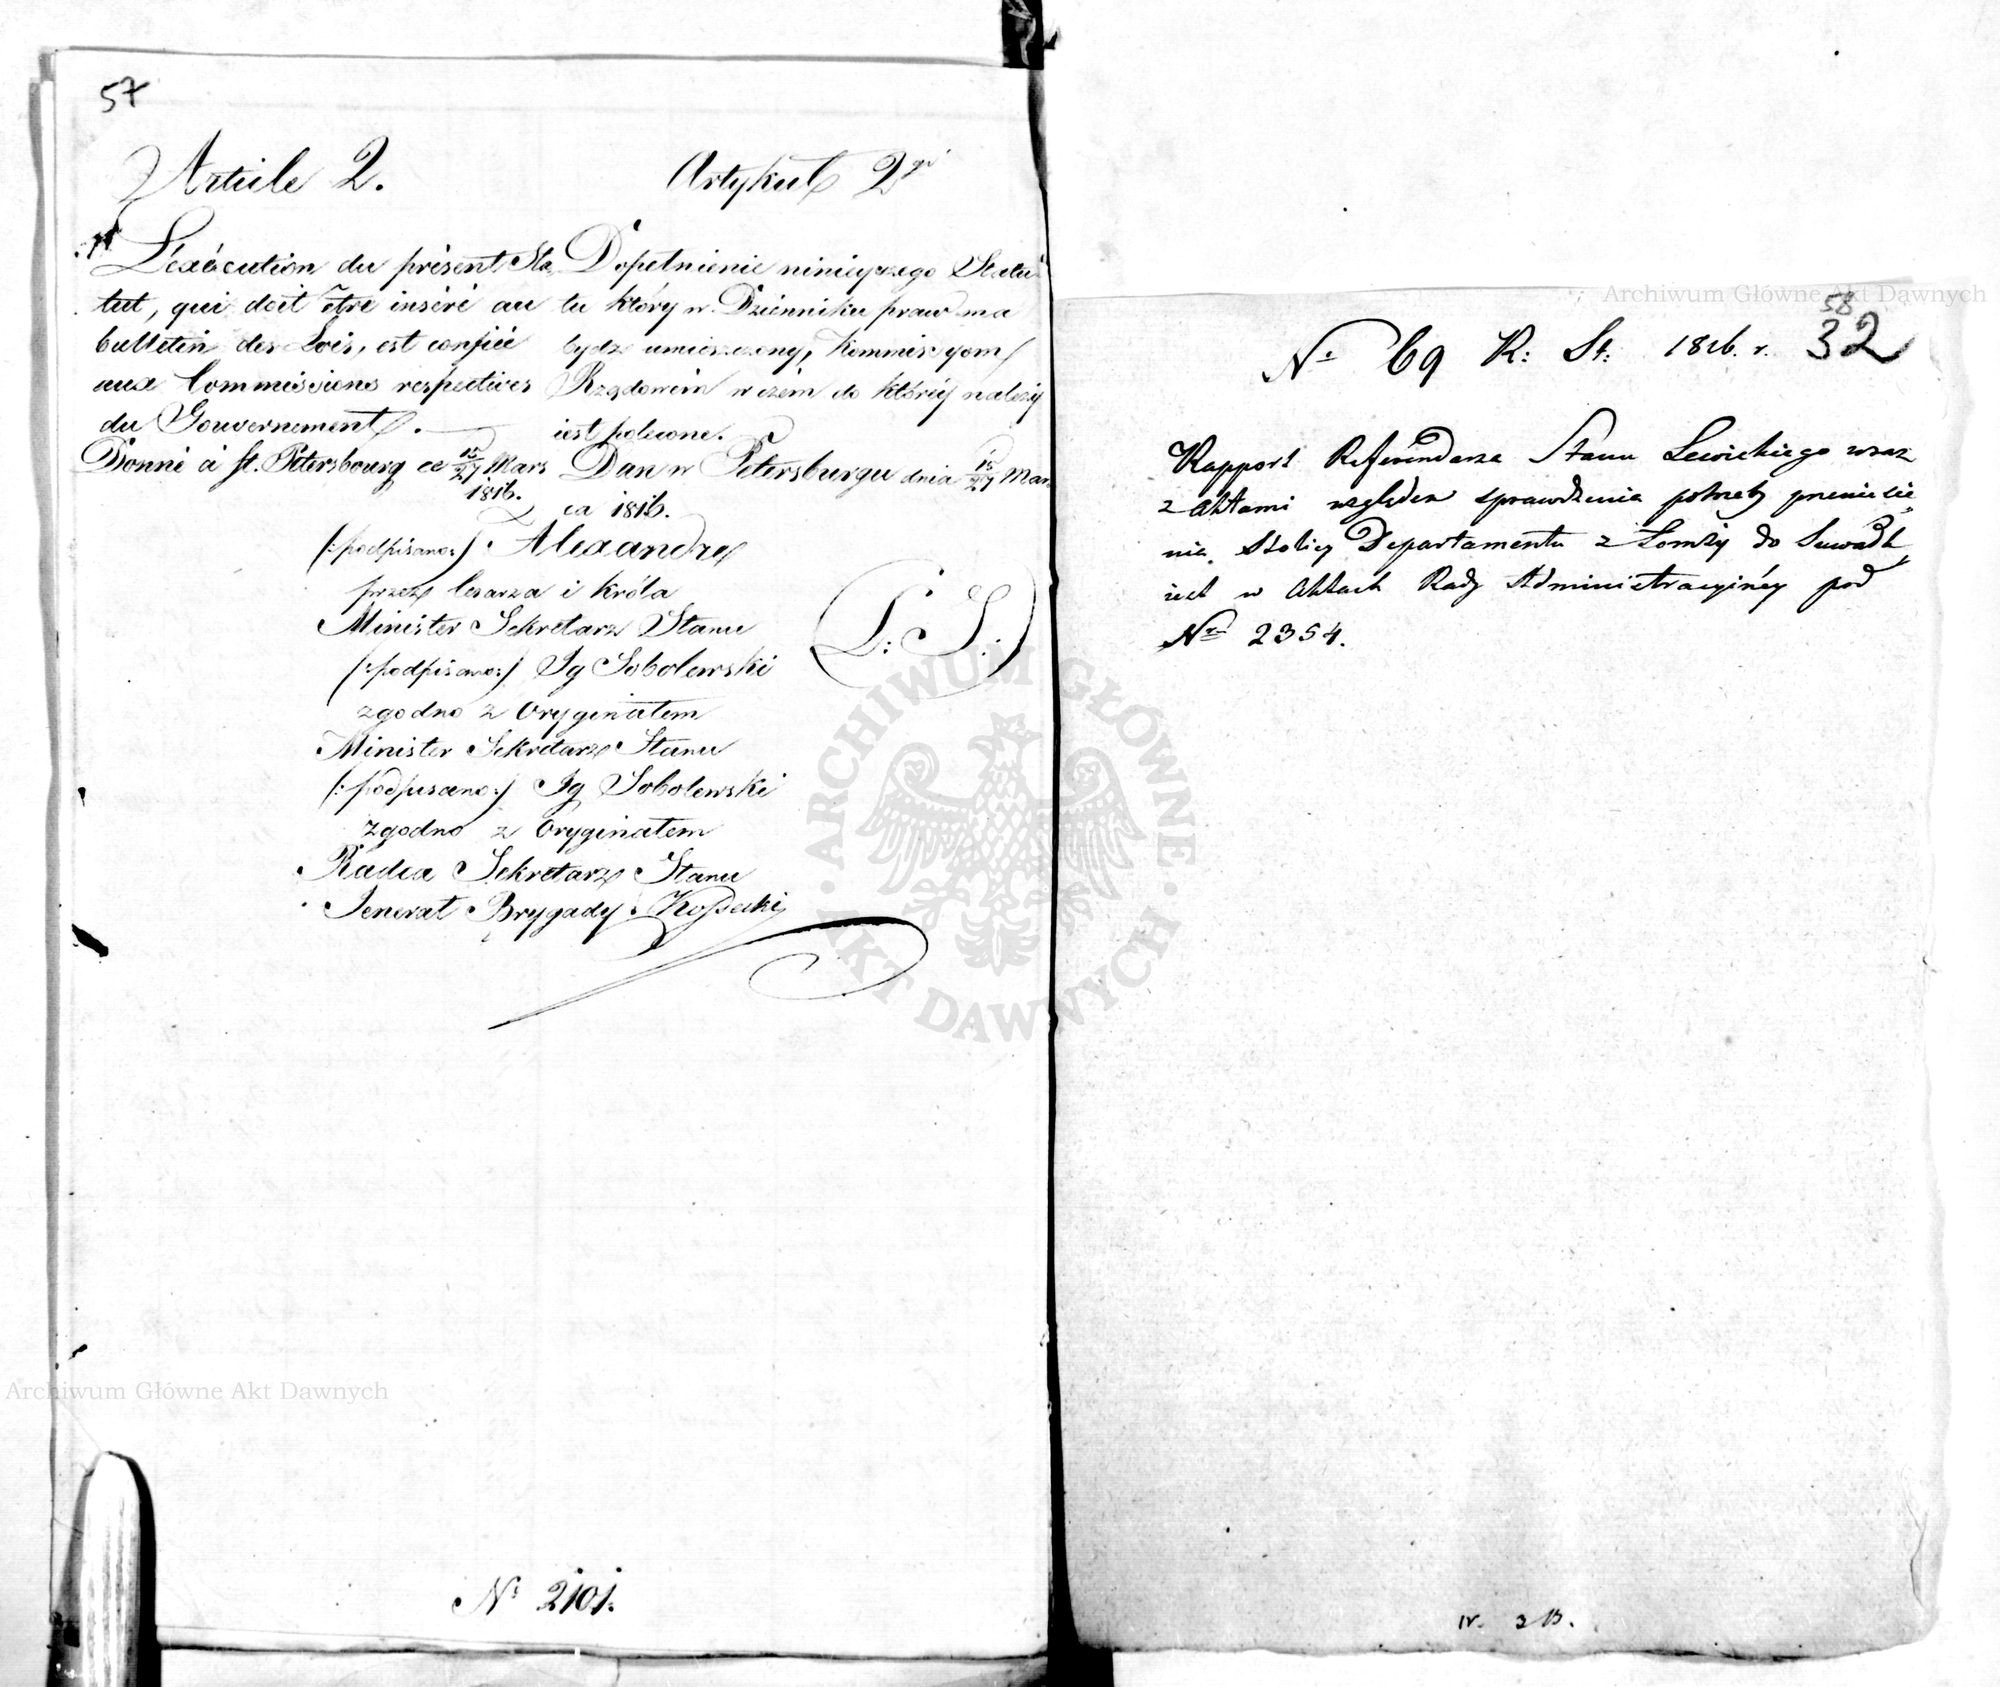 57
Article 2.
L'exécution du présent Sta
tut, qui doit être inséré au
bulletin des Lois, est confiée
aux Commissions respectives
du Gouvernement.
Donné à St. Petersbourg ce 15/27 Mars
1816.
Artykuł 2gi
Dopełnienie ninieyszego Statu
tu który w Dzienniku praw ma
bydź umieszczony, Kommissyom
Rządowém w czém do któréy należy
iest polecone.
Dan w Petersburgu dnia 15/27 Mar
ca 1816.
(:podpisano:) Alexandre
przez Cesarza i Króla
Minister Sekretarz Stanu
(:podpisano:) Ig Sobolewski
L: S:
zgodno z Oryginałem
Minister Sekretarz Stanu
(:podpisano:) Ig Sobolewski
zgodno z Oryginałem
Radca Sekretarz Stanu
Jenerał Brygady Kossecki
No 2101.
58
No 69 R: St: 1816. r. 32
Rapport Referendarza Stanu Lewickiego wraz
z Aktami względem sprawdzenia potrzeby przeniesie
nia Stolicy Departamentu z Łomży do Suwałk
iest w Aktach Rady Administracyinéy pod
Nrm 2354.
ARCHIWUM GŁÓWNE AKT DAWNYCH
Archiwum Główne Akt Dawnych
Archiwum Główne Akt Dawnych